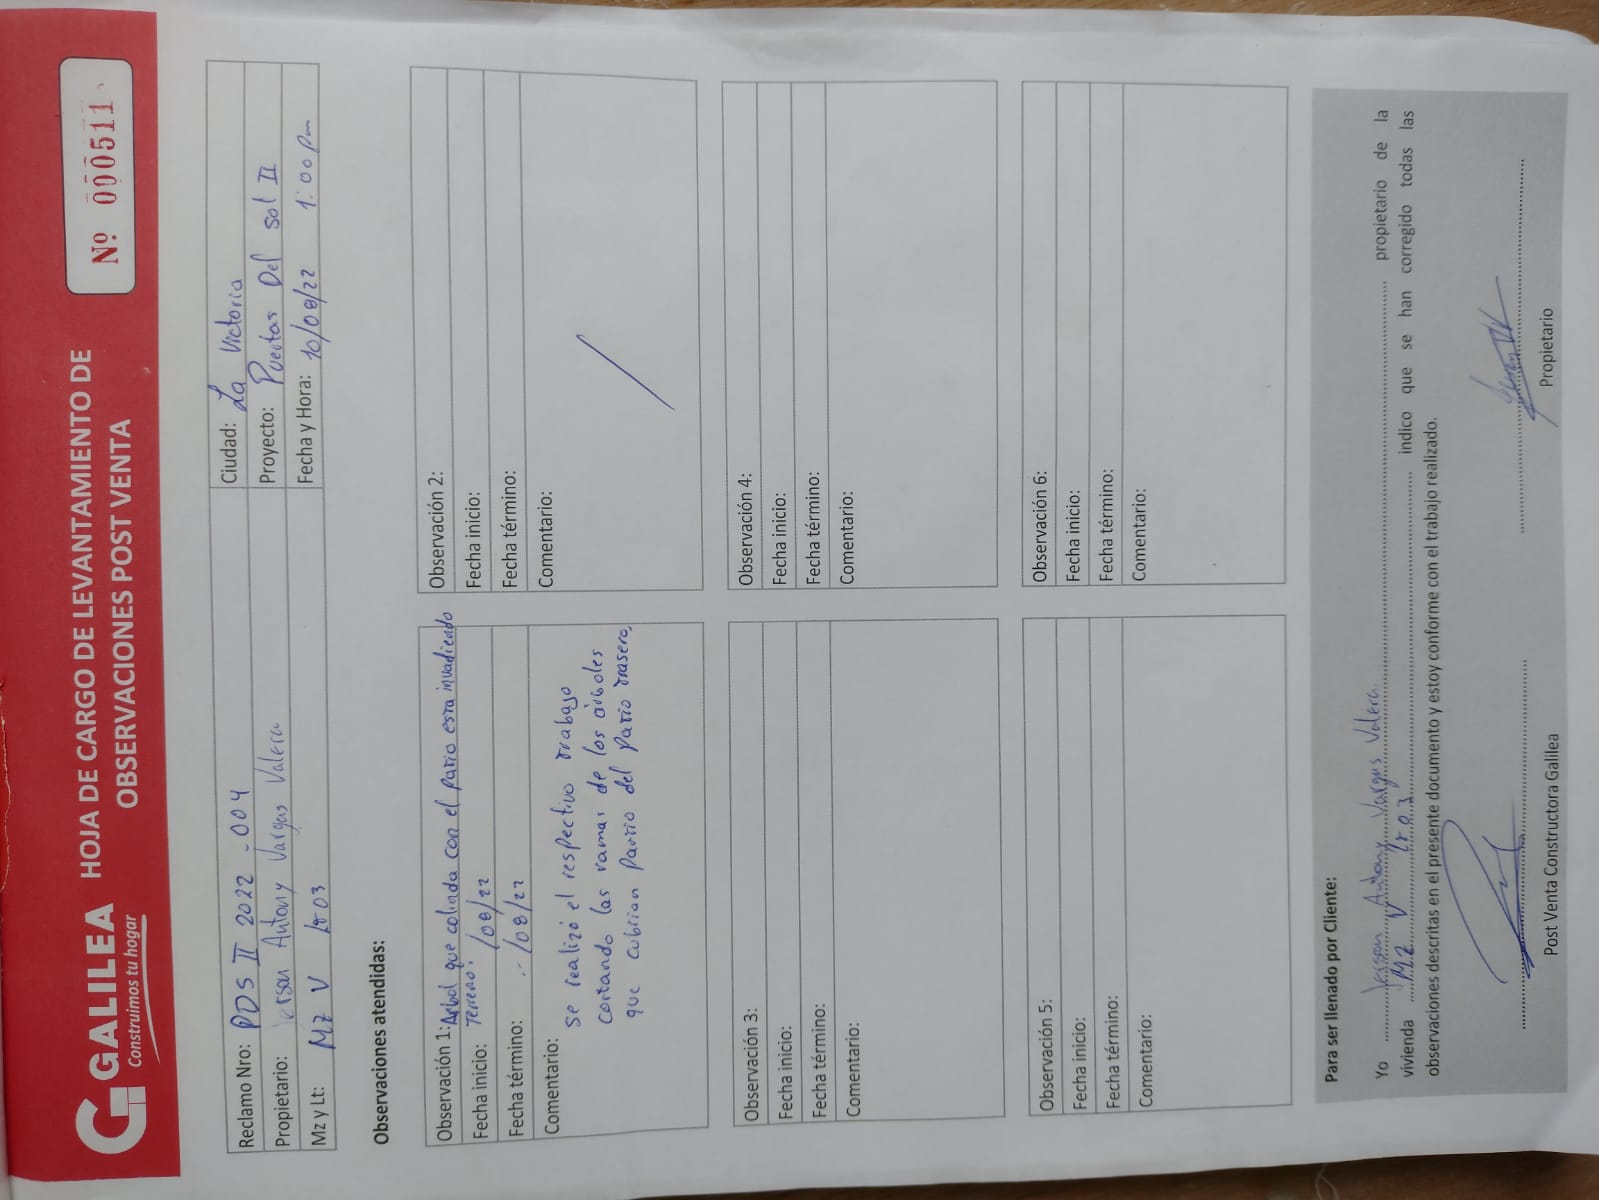 GALILEA
Construimos tu hogar
HOJA DE CARGO DE LEVANTAMIENTO DE
OBSERVACIONES POST VENTA
Nº 000511
Reclamo Nro: PDS II 2022 - 004
Ciudad: La Victoria
Propietario: Jerson Antony Vargas Valera
Proyecto: Puertas Del Sol II
Mz y Lt: MZ V Lt 03
Fecha y Hora: 10/08/22 1:00 pm
Observaciones atendidas:
Observación 1: Arbol que colinda con el patio esta invadiendo
terreno.
Fecha inicio: /08/22
Fecha término: /08/22
Comentario:
se realizó el respectivo trabajo
cortando las ramas de los árboles
que cubrian partio del patio trasero,
Observación 2:
Fecha inicio:
Fecha término:
Comentario:
Observación 3:
Fecha inicio:
Fecha término:
Comentario:
Observación 4:
Fecha inicio:
Fecha término:
Comentario:
Observación 5:
Fecha inicio:
Fecha término:
Comentario:
Observación 6:
Fecha inicio:
Fecha término:
Comentario:
Para ser llenado por Cliente:
Yo Jerson Antony Vargas Valera propietario de la
vivienda MZ V Lt 03 indico que se han corregido todas las
observaciones descritas en el presente documento y estoy conforme con el trabajo realizado.
Post Venta Constructora Galilea
Propietario